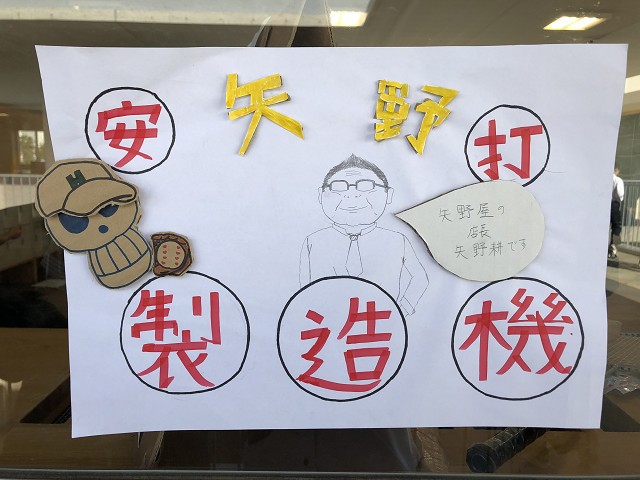 矢野
安打
製造機
矢野屋の
店長
矢野耕です
H